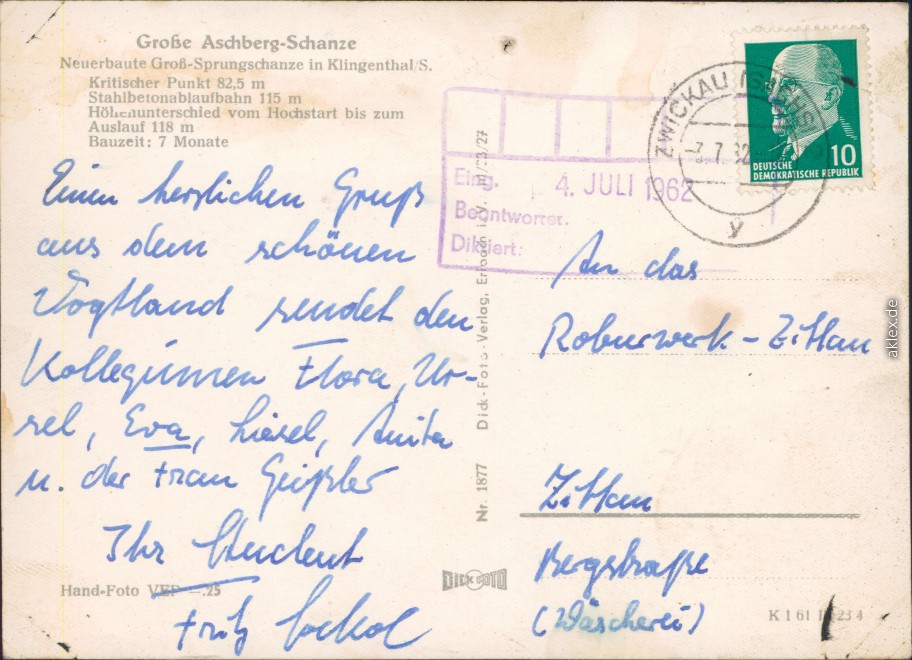 Große Aschberg-Schanze
Neuerbaute Groß-Sprungschanze in Klingenthal/S.
Kritischer Punkt 82,5 m
Stahlbetonablaufbahn 115 m
Höhenunterschied vom Hochstart bis zum
Auslauf 118 m
Bauzeit: 7 Monate
Einen herzlichen Gruß
aus dem schönen
Vogtland sendet den
Kolleginnen Flora, Ur-
sel, Eva, Liesel, Anita
u. der Frau Geißler
Ihr Student
Fritz
Hand-Foto VEP —.25
Nr. 1877 Dick-Foto-Verlag, Erlbach i. V.
DICK FOTO
Eing. 4. JULI 1962
Beantwortet:
Diktiert:
ZWICKAU (SACHS)
-3.7.62
y
DEUTSCHE
DEMOKRATISCHE REPUBLIK
10
An das
Roburwerk - Zittau
Zittau
Bergstraße
(Wäscherei)
K 1 61
aklex.de